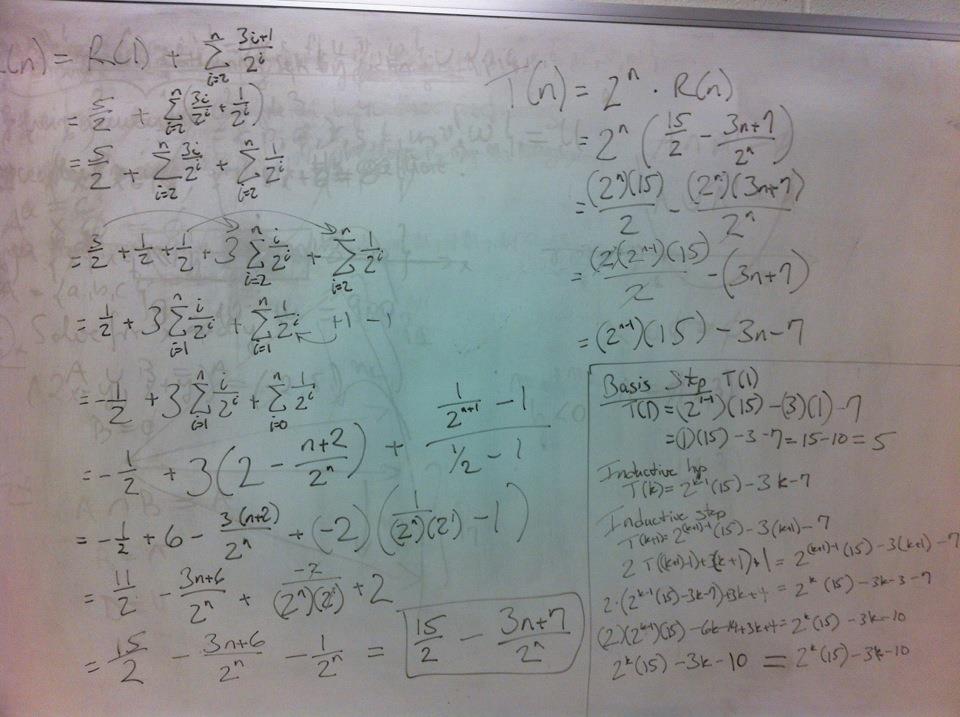 (n) = R(1) + \sum_{i=2}^{n} \frac{3i+1}{2^i}
= \frac{5}{2} + \sum_{i=2}^{n} (\frac{3i}{2^i} + \frac{1}{2^i})
= \frac{5}{2} + \sum_{i=2}^{n} \frac{3i}{2^i} + \sum_{i=2}^{n} \frac{1}{2^i}
= \frac{3}{2} + \frac{1}{2} + \frac{1}{2} + 3 \sum_{i=2}^{n} \frac{i}{2^i} + \sum_{i=2}^{n} \frac{1}{2^i}
= \frac{1}{2} + 3 \sum_{i=1}^{n} \frac{i}{2^i} + \sum_{i=1}^{n} \frac{1}{2^i} +1 -1
= -\frac{1}{2} + 3 \sum_{i=1}^{n} \frac{i}{2^i} + \sum_{i=0}^{n} \frac{1}{2^i}
= -\frac{1}{2} + 3 (2 - \frac{n+2}{2^n}) + \frac{\frac{1}{2^{n+1}} - 1}{1/2 - 1}
= -\frac{1}{2} + 6 - \frac{3(n+2)}{2^n} + (-2) (\frac{1}{(2^n)(2^1)} - 1)
= \frac{11}{2} - \frac{3n+6}{2^n} + \frac{-2}{(2^n)(2^1)} + 2
= \frac{15}{2} - \frac{3n+6}{2^n} - \frac{1}{2^n} = \frac{15}{2} - \frac{3n+7}{2^n}
T(n) = 2^n · R(n)
= 2^n (\frac{15}{2} - \frac{3n+7}{2^n})
= \frac{(2^n)(15)}{2} - \frac{(2^n)(3n+7)}{2^n}
= \frac{(2)(2^{n-1})(15)}{2} - (3n+7)
= (2^{n-1})(15) - 3n - 7
Basis Step T(1)
T(1) = (2^{1-1})(15) - (3)(1) - 7
= (1)(15) - 3 - 7 = 15 - 10 = 5
Inductive hyp
T(k) = 2^{k-1}(15) - 3k - 7
Inductive step
T(k+1) = 2^{(k+1)-1}(15) - 3(k+1) - 7
2 T((k+1)-1) + 3(k+1) + 1 = 2^{(k+1)-1}(15) - 3(k+1) - 7
2·(2^{k-1}(15) - 3k - 7) + 3k + 4 = 2^k(15) - 3k - 3 - 7
(2)(2^{k-1})(15) - 6k - 14 + 3k + 4 = 2^k(15) - 3k - 10
2^k(15) - 3k - 10 = 2^k(15) - 3k - 10